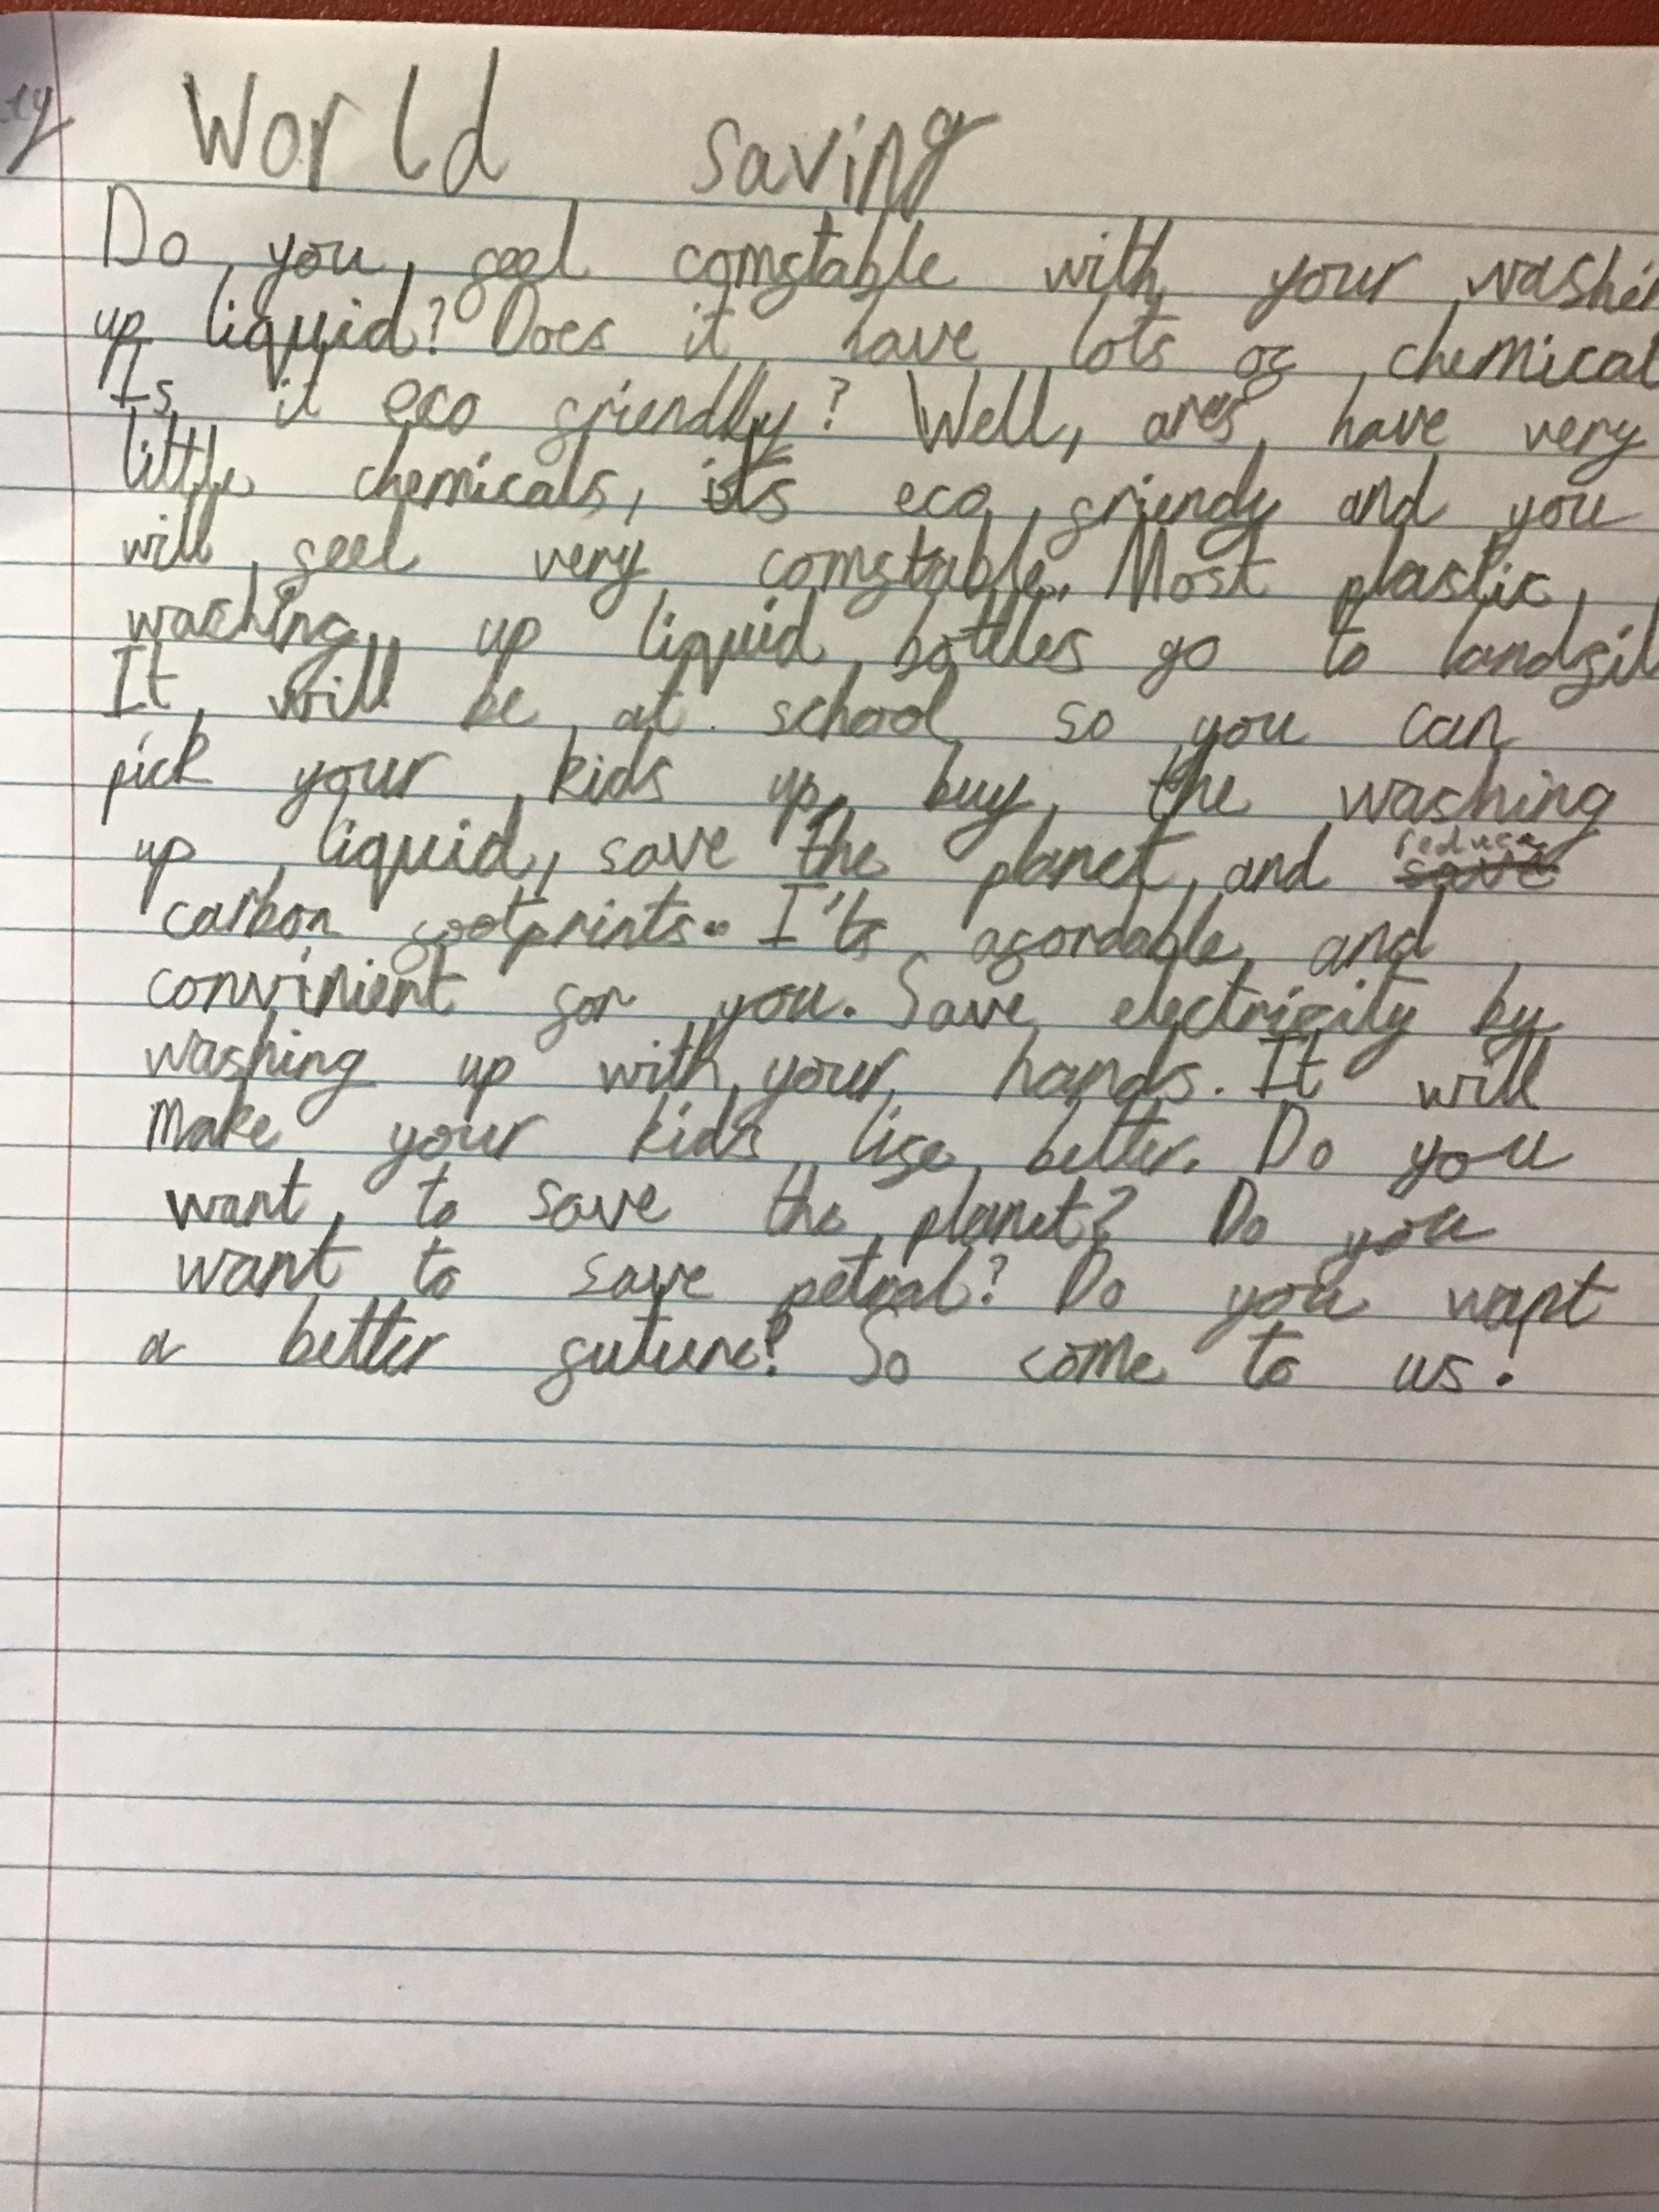 World saving
Do you feel comftable with your washin
up liquid? Does it have lots of chemical
Is it eco friendly? Well, ares have very
little chemicals, its eco friendy and you
will feel very comftable. Most plastic
washing up liquid bottles go to landfil
It will be at school so you can
pick your kids up, buy the washing
up liquid, save the planet, and reduce
carbon footprints.. I'ts afordable and
convinient for you. Save electricity by
washing up with your hands. It will
make your kids life better. Do you
want to save the planet? Do you
want to save petral? Do you want
a better future? So come to us!